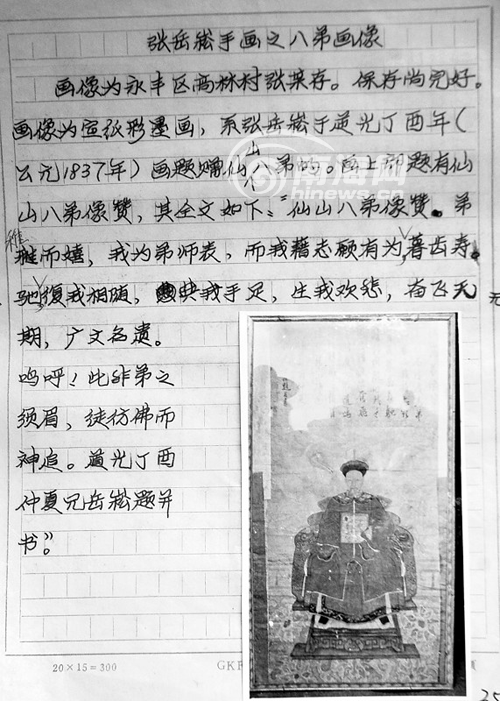 张岳崧手画之八弟画像
画像为永丰区高林村张某存。保存尚完好。
画像为宣纸彩墨画，系张岳崧于道光丁酉年（
公元1837年）画题赠仙山八弟的。画上部题有仙
山八弟像赞，其全文如下："仙山八弟像赞。弟
稚而嬉，我为弟师表，而我藉志顾有为，暮齿寿。
驰復我相随，典我手足，生我欢愁，奋飞无
期，广文名遗。
呜呼！此非弟之
须眉，徒彷佛而
神追。道光丁酉
仲夏兄岳崧题并
书"。
南海网
hinews.cn
20×15=300
25